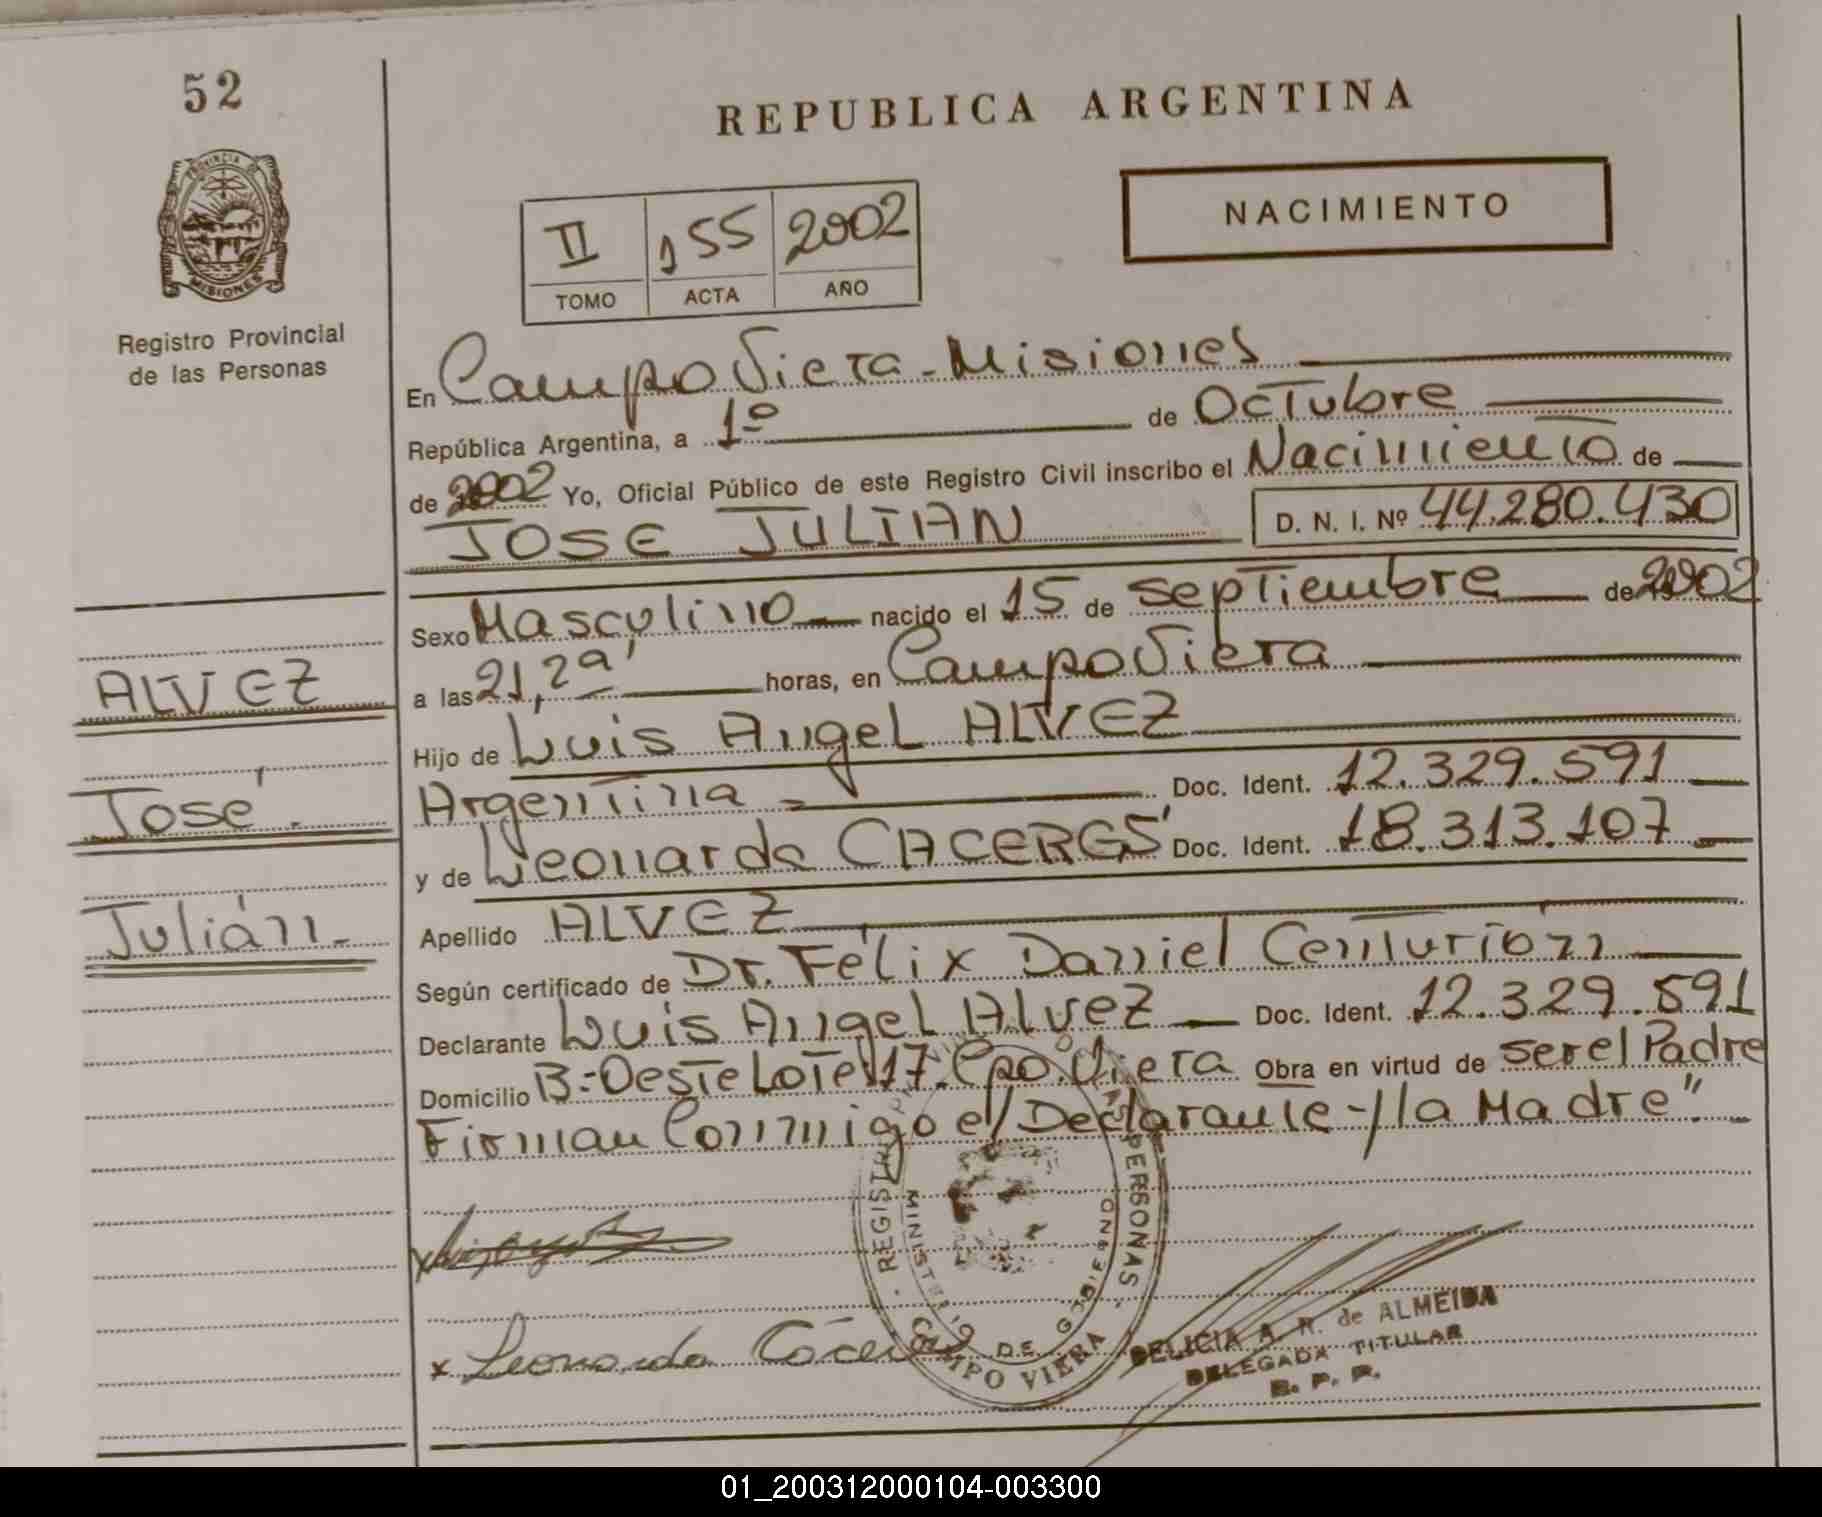 52
REPUBLICA ARGENTINA
PROVINCIA DE
MISIONES
Registro Provincial
de las Personas
NACIMIENTO
II 155 2002
TOMO ACTA AÑO
En Campo Viera - Misiones
República Argentina, a 1º de Octubre
de 2002 Yo, Oficial Público de este Registro Civil inscribo el Nacimiento de
JOSE JULIAN D. N. I. Nº 44.280.430
Sexo Masculino nacido el 15 de septiembre de 2002
a las 21, horas, en Campo Viera
Hijo de Luis Angel ALVEZ
Argentina - Doc. Ident. 12.329.591
y de Leonarda CACERES Doc. Ident. 18.313.107
Apellido ALVEZ
Según certificado de Dr. Félix Daniel Centurión
Declarante Luis Angel Alvez Doc. Ident. 12.329.591
Domicilio B:-Oeste Lote 17. Cpo. Viera Obra en virtud de ser el Padre
Firman Conmigo el/Declarante-/la Madre".
ALVEZ
José.
Julián.-
REGISTRO PROVINCIAL DE LAS PERSONAS
MINISTERIO DE GOBIERNO
CAMPO VIERA
x Leonarda Cáceres
DELICIA A. R. de ALMEIDA
DELEGADA TITULAR
R. P. P.
01_200312000104-003300